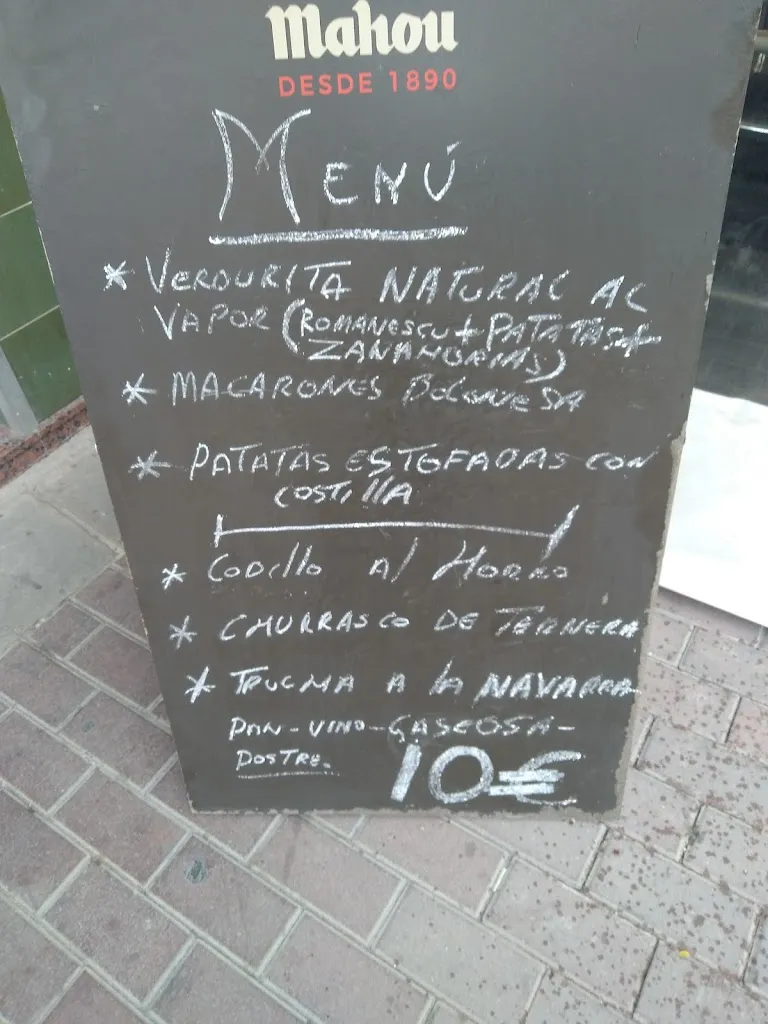 Mahou
DESDE 1890
MENÚ
* VERDURITA NATURAL AL
VAPOR (ROMANESCU + PATATAS +
ZANAHORIAS)
* MACARONES BOLONESA
* PATATAS ESTOFADAS CON
COSTILLA
* CODILLO Al HORNO
* CHURRASCO DE TERNERA
* TRUCHA A lA NAVARRA
PAN-VINO-GASEOSA-
POSTRE.
10€